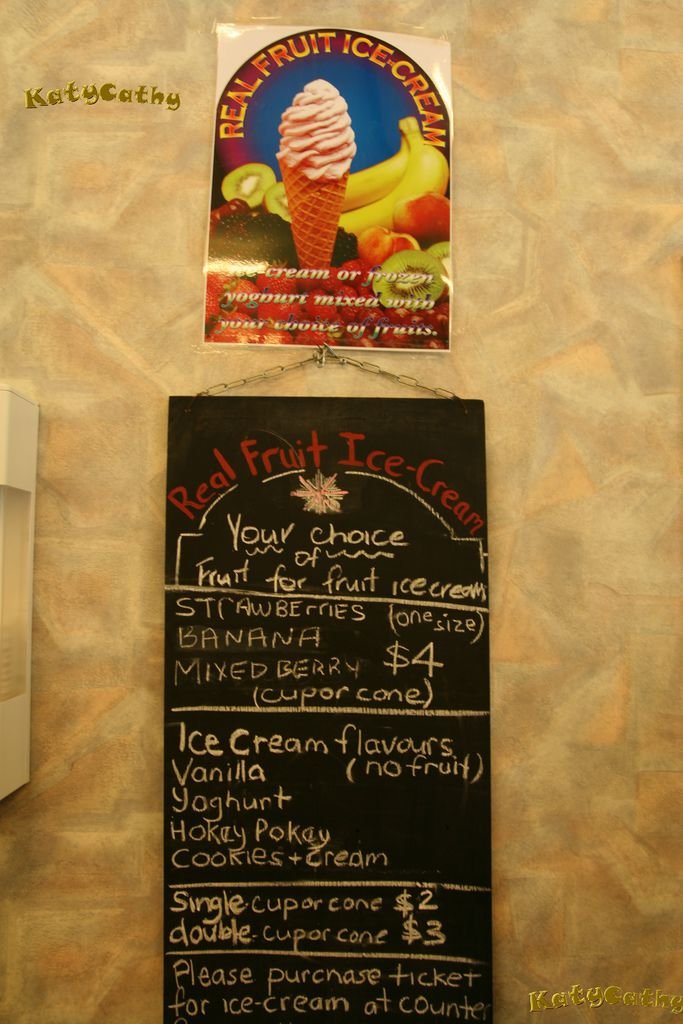 KatyCathy
REAL FRUIT ICE-CREAM
ice-cream or frozen
yoghurt mixed with
your choice of fruits.
Real Fruit Ice-Cream
Your choice
of
Fruit for fruit icecream
STRAWBERRIES (one size)
BANANA
MIXED BERRY $4
(cup or cone)
Ice Cream flavours
Vanilla (no fruit)
Yoghurt
Hokey Pokey
Cookies + Cream
Single-cup or cone $2
double-cup or cone $3
Please purchase ticket
for ice-cream at counter
KatyCathy